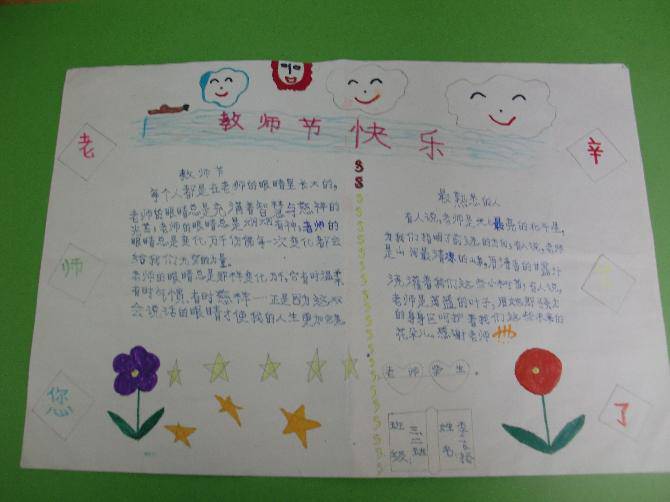 教师节快乐
老
师
您
辛
了
教师节
每个人都是在老师的眼睛里长大的,
老师的眼睛总是充满着智慧与慈祥的
光芒;老师的眼睛总是炯炯有神;老师的
眼睛总是变化万千仿佛每一次变化都会
给我们无穷的力量。
老师的眼睛总是那样变化万千,它有时温柔
有时气愤、有时慈祥……正是因为这双
会说话的眼睛才使我的人生更加完美
最熟悉的人
有人说,老师是
为我们指明了前进的方向;有人说,老师
是山间最清 的山泉,用清香的甘露汁
浇灌着我们这些小树苗;有人说,
老师是 的叶子,用她那强大
的身躯呵护着我们这些未来的
花朵儿。感谢老师
老师学生。
班级:三
姓名:李